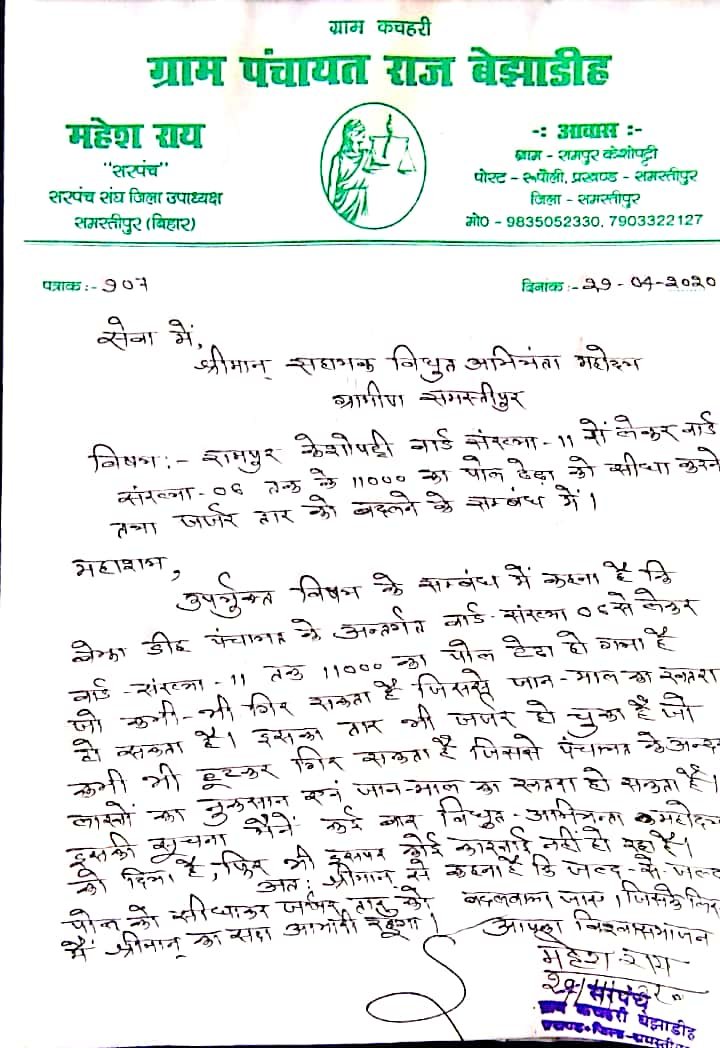 ग्राम कचहरी
ग्राम पंचायत राज बेझाडीह
महेश राय
"सरपंच"
सरपंच संघ जिला उपाध्यक्ष
समस्तीपुर (बिहार)
-: आवास :-
ग्राम - रामपुर केशोपट्टी
पोस्ट - रूपौली, प्रखण्ड - समस्तीपुर
जिला - समस्तीपुर
मो0 - 9835052330, 7903322127
पत्रांक :- 907
दिनांक :- 29-04-2020
सेवा में,
श्रीमान् सहायक विधुत अभियंता महोदय
ग्रामीण समस्तीपुर
विषय :- रामपुर केशोपट्टी वार्ड संख्या-11 से लेकर वार्ड
संख्या-06 तक के 11000 का पोल टेढ़ा को सीधा करने
तथा जर्जर तार को बदलने के सम्बंध में।
महाशय,
उपर्युक्त विषय के सम्बंध में कहना है कि
बेझा डीह पंचायत के अन्तर्गत वार्ड-संख्या 06 से लेकर
वार्ड-संख्या-11 तक 11000 का पोल टेढा हो गया है
जो कभी-भी गिर सकता है जिससे जान-माल का खतरा
हो सकता है। इसका तार भी जर्जर हो चुका है जो
कभी भी टूटकर गिर सकता है जिससे पंचायत के अन्दर
लाखों का नुकसान एवं जान-माल का खतरा हो सकता है।
इसकी सूचना मैनें कई बार विधुत-अभियन्ता महोदय
को दिया है, फिर भी इसपर कोई कारवाई नहीं हो रहा है।
अत: श्रीमान् से कहना है कि जल्द-से-जल्द
पोल को सीधाकर जर्जर तार को बदलवाया जाए। जिसके लिए
मैं श्रीमान् का सदा आभारी रहूंगा।
आपका विश्वासभाजन
महेश राय
सरपंच
ग्राम कचहरी बेझाडीह
प्रखण्ड+जिला-समस्तीपुर